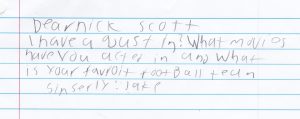 Dearnick scott
I have a qustin! What movies
have you acter in and what
is your favroit football team
sinserly: Jake